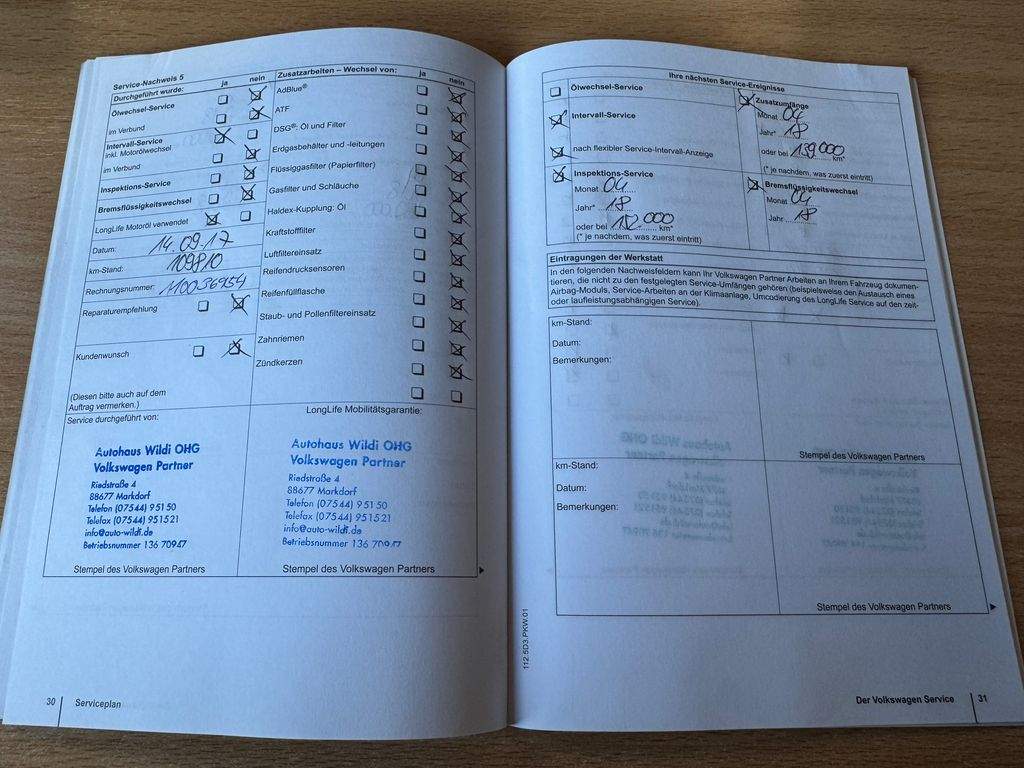 Service-Nachweis 5
ja nein
Durchgeführt wurde:
Ölwechsel-Service
im Verbund
Intervall-Service
inkl. Motorölwechsel
im Verbund
Inspektions-Service
Bremsflüssigkeitswechsel
LongLife Motoröl verwendet
Datum: 14.09.17
km-Stand: 109810
Rechnungsnummer:
Reparaturempfehlung
Kundenwunsch
(Diesen bitte auch auf dem
Auftrag vermerken.)
Zusatzarbeiten – Wechsel von: ja nein
AdBlue®
ATF
DSG®: Öl und Filter
Erdgasbehälter und -leitungen
Flüssiggasfilter (Papierfilter)
Gasfilter und Schläuche
Haldex-Kupplung: Öl
Kraftstofffilter
Luftfiltereinsatz
Reifendrucksensoren
Reifenfüllflasche
Staub- und Pollenfiltereinsatz
Zahnriemen
Zündkerzen
Service durchgeführt von:
Autohaus Wildi OHG
Volkswagen Partner
Riedstraße 4
88677 Markdorf
Telefon (07544) 95150
Telefax (07544) 951521
info@auto-wildi.de
Betriebsnummer 136 70947
Stempel des Volkswagen Partners
LongLife Mobilitätsgarantie:
Autohaus Wildi OHG
Volkswagen Partner
Riedstraße 4
88677 Markdorf
Telefon (07544) 95150
Telefax (07544) 951521
info@auto-wildi.de
Betriebsnummer 136 70947
Stempel des Volkswagen Partners
30 Serviceplan
Ihre nächsten Service-Ereignisse
Ölwechsel-Service
Intervall-Service
nach flexibler Service-Intervall-Anzeige
Zusatzumfänge
Monat 04
Jahr* 18
oder bei 139000 km*
(* je nachdem, was zuerst eintritt)
Inspektions-Service
Monat 04
Jahr* 18
oder bei 152.000 km*
(* je nachdem, was zuerst eintritt)
Bremsflüssigkeitswechsel
Monat 04
Jahr 18
Eintragungen der Werkstatt
In den folgenden Nachweisfeldern kann Ihr Volkswagen Partner Arbeiten an Ihrem Fahrzeug dokumen-
tieren, die nicht zu den festgelegten Service-Umfängen gehören (beispielsweise den Austausch eines
Airbag-Moduls, Service-Arbeiten an der Klimaanlage, Umcodierung des LongLife Service auf den zeit-
oder laufleistungsabhängigen Service).
km-Stand:
Datum:
Bemerkungen:
Stempel des Volkswagen Partners
km-Stand:
Datum:
Bemerkungen:
Stempel des Volkswagen Partners
112.5D3.PKW.01
Der Volkswagen Service 31